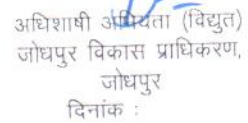 अधिशाषी अभियंता (विद्युत)
जोधपुर विकास प्राधिकरण,
जोधपुर
दिनांक :